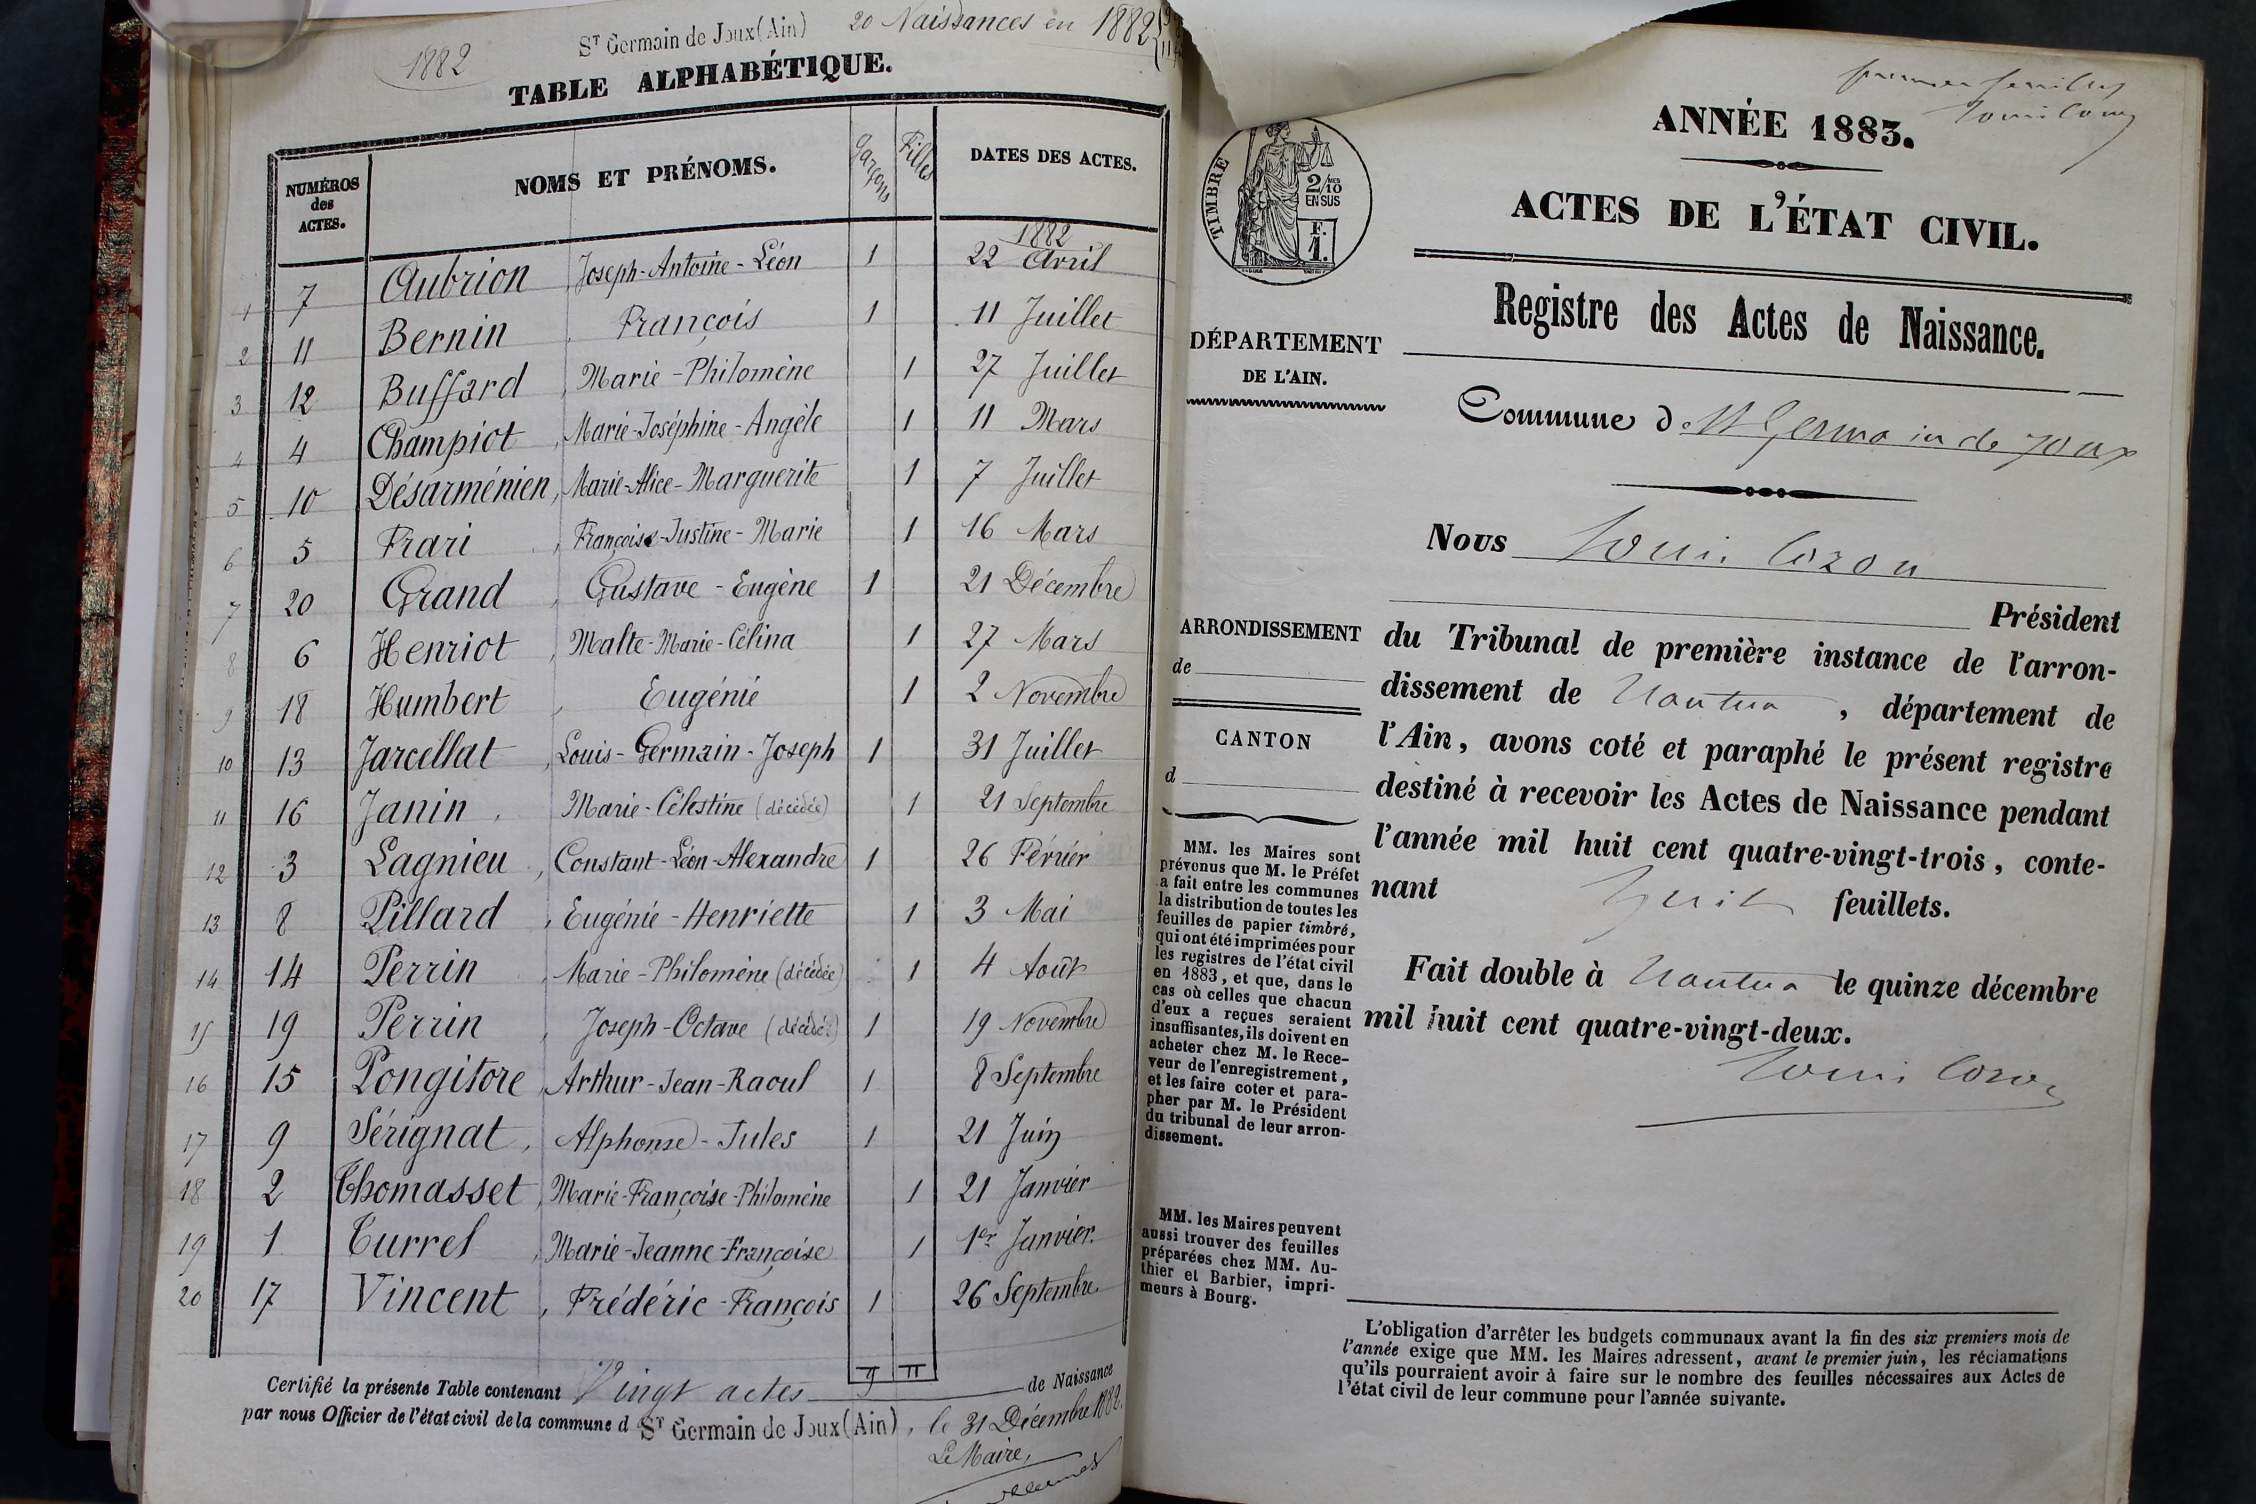 1882
St Germain de Joux (Ain) 20 Naissances en 1882
TABLE ALPHABÉTIQUE.
NUMÉROS des ACTES. NOMS ET PRÉNOMS. Garçons Filles DATES DES ACTES.
1882
1 7 Aubrion Joseph-Antoine-Léon 1 22 Avril
2 11 Bernin, François 1 11 Juillet
3 12 Buffard, Marie-Philomène 1 27 Juillet
4 4 Champiot, Marie-Joséphine-Angèle 1 11 Mars
5 10 Désarménien, Marie-Alice-Marguerite 1 7 Juillet
6 5 Frari, Françoise-Justine-Marie 1 16 Mars
7 20 Grand, Gustave-Eugène 1 21 Décembre
8 6 Henriot, Malte-Marie-Célina 1 27 Mars
9 18 Humbert, Eugénie 1 2 Novembre
10 13 Jarcellat, Louis-Germain-Joseph 1 31 Juillet
11 16 Janin, Marie-Célestine (décédée) 1 21 Septembre
12 3 Lagnieu, Constant-Léon-Alexandre 1 26 Février
13 8 Pillard, Eugénie-Henriette 1 3 Mai
14 14 Perrin, Marie-Philomène (décédée) 1 4 Août
15 19 Perrin, Joseph-Octave (décédé) 1 19 Novembre
16 15 Pongitore, Arthur-Jean-Raoul 1 8 Septembre
17 9 Sérignat, Alphonse-Jules 1 21 Juin
18 2 Thomasset, Marie-Françoise-Philomène 1 21 Janvier
19 1 Turrel, Marie-Jeanne-Françoise 1 1er Janvier.
20 17 Vincent, Frédéric-François 1 26 Septembre.
9 11
Certifié la présente Table contenant Vingt actes de Naissance
par nous Officier de l'état civil de la commune d St Germain de Joux (Ain), le 31 Décembre 1882.
Le Maire,
ANNÉE 1883.
ACTES DE L'ÉTAT CIVIL.
TIMBRE
2/10
MES
EN SUS
F.
1.
Registre des Actes de Naissance.
DÉPARTEMENT
DE L'AIN.
Commune de St Germain de Joux
Nous Louis Cozon
Président
du Tribunal de première instance de l'arron-
dissement de Nantua, département de
l'Ain, avons coté et paraphé le présent registre
destiné à recevoir les Actes de Naissance pendant
l'année mil huit cent quatre-vingt-trois, conte-
nant huit feuillets.
Fait double à Nantua le quinze décembre
mil huit cent quatre-vingt-deux.
Louis Cozon
ARRONDISSEMENT
de
CANTON
d
MM. les Maires sont
prévenus que M. le Préfet
a fait entre les communes
la distribution de toutes les
feuilles de papier timbré,
qui ont été imprimées pour
les registres de l'état civil
en 1883, et que, dans le
cas où celles que chacun
d'eux a reçues seraient
insuffisantes, ils doivent en
acheter chez M. le Rece-
veur de l'enregistrement,
et les faire coter et para-
pher par M. le Président
du tribunal de leur arron-
dissement.
MM. les Maires peuvent
aussi trouver des feuilles
préparées chez MM. Au-
thier et Barbier, impri-
meurs à Bourg.
L'obligation d'arrêter les budgets communaux avant la fin des six premiers mois de
l'année exige que MM. les Maires adressent, avant le premier juin, les réclamations
qu'ils pourraient avoir à faire sur le nombre des feuilles nécessaires aux Actes de
l'état civil de leur commune pour l'année suivante.